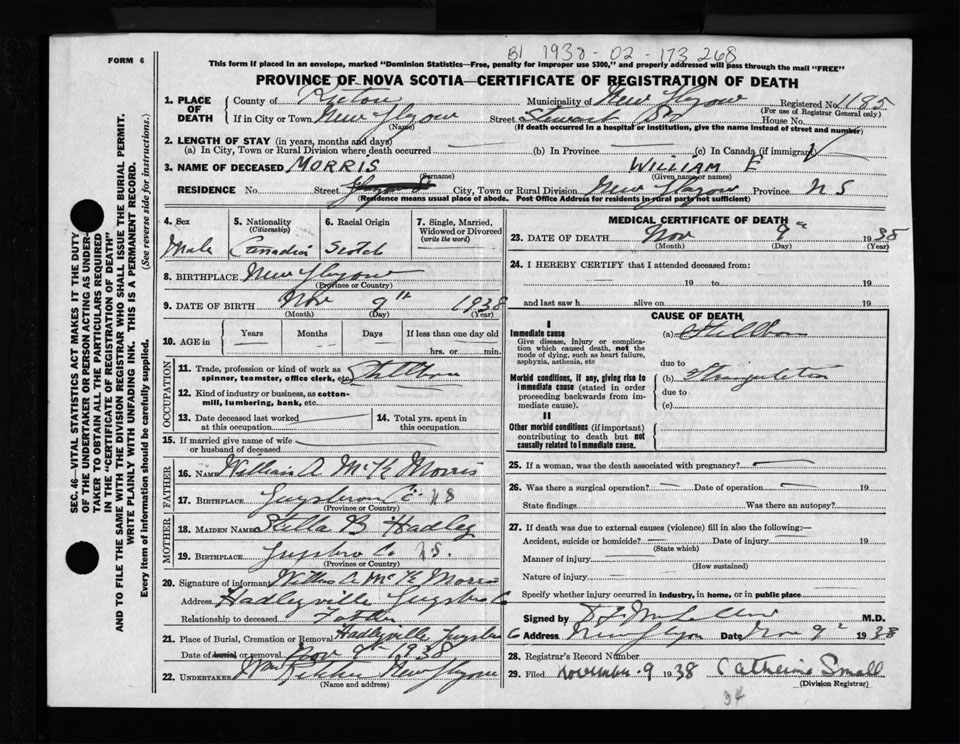 BI 1938-02-173268
FORM 6
This form if placed in an envelope, marked "Dominion Statistics—Free, penalty for improper use $300," and properly addressed will pass through the mail "FREE"
PROVINCE OF NOVA SCOTIA—CERTIFICATE OF REGISTRATION OF DEATH
SEC. 46—VITAL STATISTICS ACT MAKES IT THE DUTY
OF THE UNDERTAKER OR PERSON ACTING AS UNDER-
TAKER TO OBTAIN ALL THE PARTICULARS REQUIRED
IN THE "CERTIFICATE OF REGISTRATION OF DEATH"
AND TO FILE THE SAME WITH THE DIVISION REGISTRAR WHO SHALL ISSUE THE BURIAL PERMIT.
WRITE PLAINLY WITH UNFADING INK. THIS IS A PERMANENT RECORD.
Every item of information should be carefully supplied. (See reverse side for instructions.)
1. PLACE OF DEATH
County of Pictou Municipality of New Glasgow Registered No. 1185
(For use of Registrar General only.)
If in City or Town New Glasgow Street Stewart St House No.
(Name) (If death occurred in a hospital or institution, give the name instead of street and number)
2. LENGTH OF STAY (in years, months and days)
(a) In City, Town or Rural Division where death occurred (b) In Province (c) In Canada (if immigrant)
3. NAME OF DECEASED MORRIS WILLIAM E
(Surname) (Given name or names)
RESIDENCE No. Street City, Town or Rural Division New Glasgow Province N S
(Residence means usual place of abode. Post Office Address for residents in rural parts not sufficient)
4. Sex 5. Nationality 6. Racial Origin 7. Single, Married,
(Citizenship) Widowed or Divorced
(write the word)
Male Canadian Scotch
8. BIRTHPLACE New Glasgow
(Province or Country)
9. DATE OF BIRTH Nov 9th 1938
(Month) (Day) (Year)
10. AGE in Years Months Days If less than one day old
hrs. or min.
OCCUPATION
11. Trade, profession or kind of work as
spinner, teamster, office clerk, etc. Stillborn
12. Kind of industry or business, as cotton-
mill, lumbering, bank, etc.
13. Date deceased last worked 14. Total yrs. spent in
at this occupation this occupation
15. If married give name of wife
or husband of deceased
FATHER
16. NAME William A. McK Morris
17. BIRTHPLACE Guysboro Co. N S
(Province or Country)
MOTHER
18. MAIDEN NAME Stella B Hadley
19. BIRTHPLACE Guysboro Co N S.
(Province or Country)
20. Signature of informant A. McK Morris
Address Hadleyville Guysboro Co
Relationship to deceased Father
21. Place of Burial, Cremation or Removal Hadleyville Guysboro
Date of burial or removal Nov 9th 1938
22. UNDERTAKER New Glasgow
(Name and address)
MEDICAL CERTIFICATE OF DEATH
23. DATE OF DEATH Nov 9th 1938
(Month) (Day) (Year)
24. I HEREBY CERTIFY that I attended deceased from:
19 to 19
and last saw h alive on 19
CAUSE OF DEATH
I
Immediate cause (a) Stillborn
Give disease, injury or compli-
cation which caused death, not the
mode of dying, such as heart failure,
asphyxia, asthenia, etc
due to
Morbid conditions, if any, giving rise to (b) Strangulation
immediate cause (stated in order due to
proceeding backwards from im-
mediate cause). (c)
II
Other morbid conditions (if important)
contributing to death but not
causally related to immediate cause.
25. If a woman, was the death associated with pregnancy?
26. Was there a surgical operation? Date of operation 19
State findings Was there an autopsy?
27. If death was due to external causes (violence) fill in also the following:—
Accident, suicide or homicide? Date of injury 19
(State which)
Manner of injury
(How sustained)
Nature of injury
Specify whether injury occurred in industry, in home, or in public place
Signed by M.D.
Address New Glasgow Date Nov 9th 1938
28. Registrar's Record Number
29. Filed November 9 1938 Catherine Small
(Division Registrar)
34